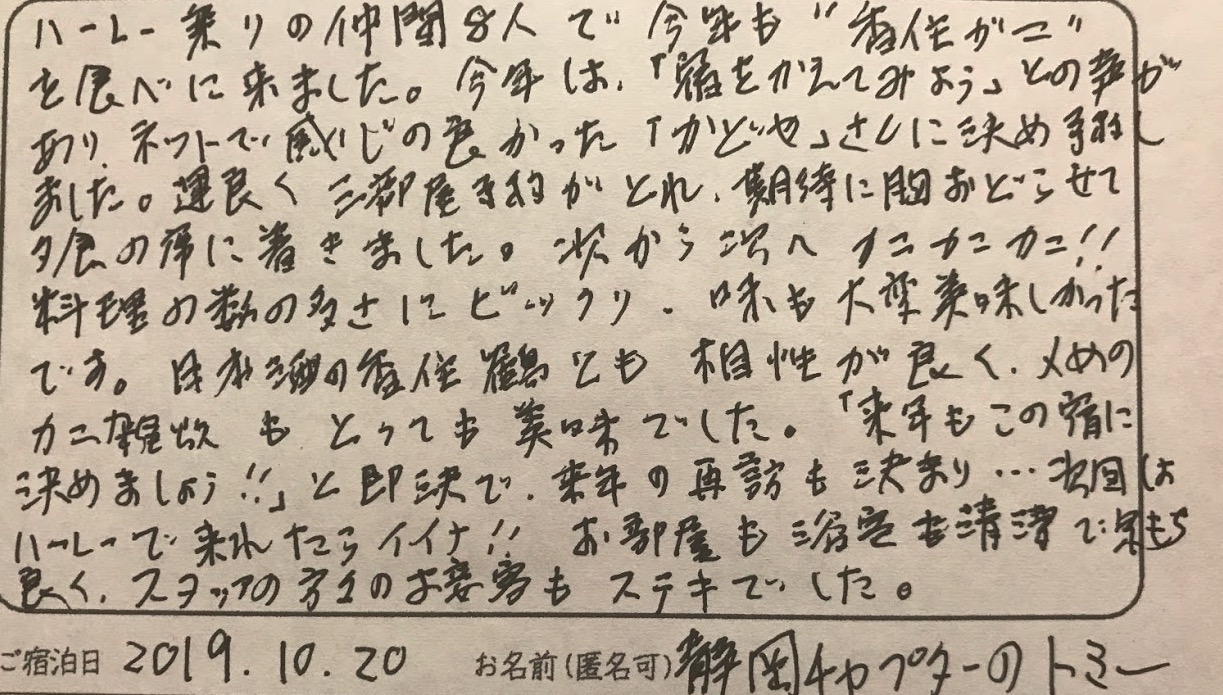 ハーレー乗りの仲間8人で今年も"香住がニ"
を食べに来ました。今年は、「宿をかえてみよう」との声が
あり、ネットで感じの良かった「かどや」さんに決め予約し
ました。運良く三部屋予約がとれ、期待に胸おどらせて
夕食の席に着きました。次から次へカニカニカニ!!
料理の数の多さにビックリ、味も大変美味しかった
です。日本酒の香住鶴とも相性が良く、〆めの
カニ雑炊もとっても美味でした。「来年もこの宿に
決めましょう!!」と即決で、来年の再訪も決まり…次回は
ハーレーで来れたらイイナ!! お部屋も浴室も清潔で気もち
良く、スタッフの方々のお接客もステキでした。
ご宿泊日 2019.10.20 お名前(匿名可) 静岡チャプターのトミー